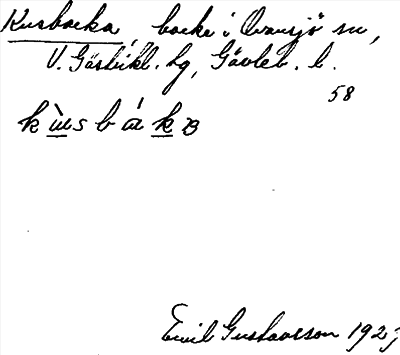 Kusbacka, backe i Ovansjö sn,
V. Gästrikl. hg, Gävleb. l.
58
Emil Gustavsson 192